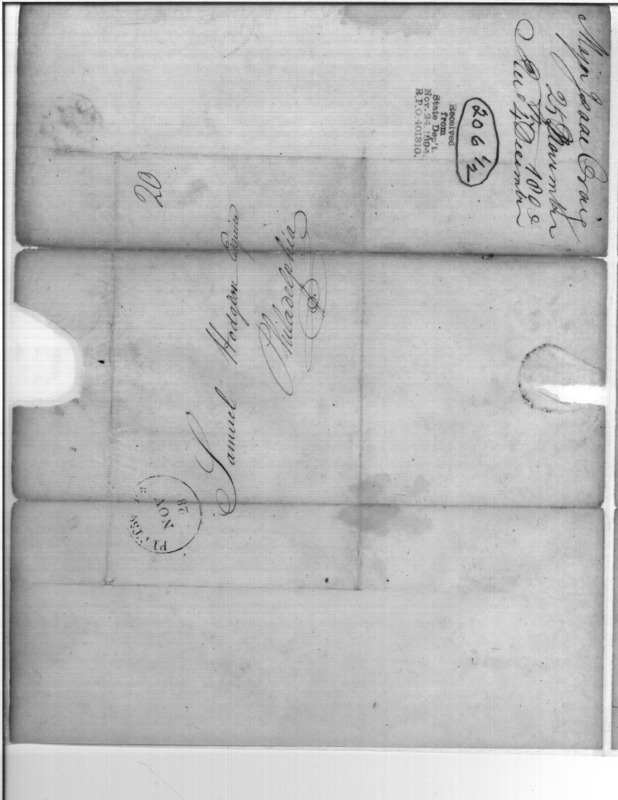 Major Isaac Craig
25 Novembr
Recd 4 December
206 1/2
Received
from
State Dep't.
Nov. 24 1894
R.P.O. 401310.
20
Samuel Hodgdon Esquire
Philadelphia
NOV
28